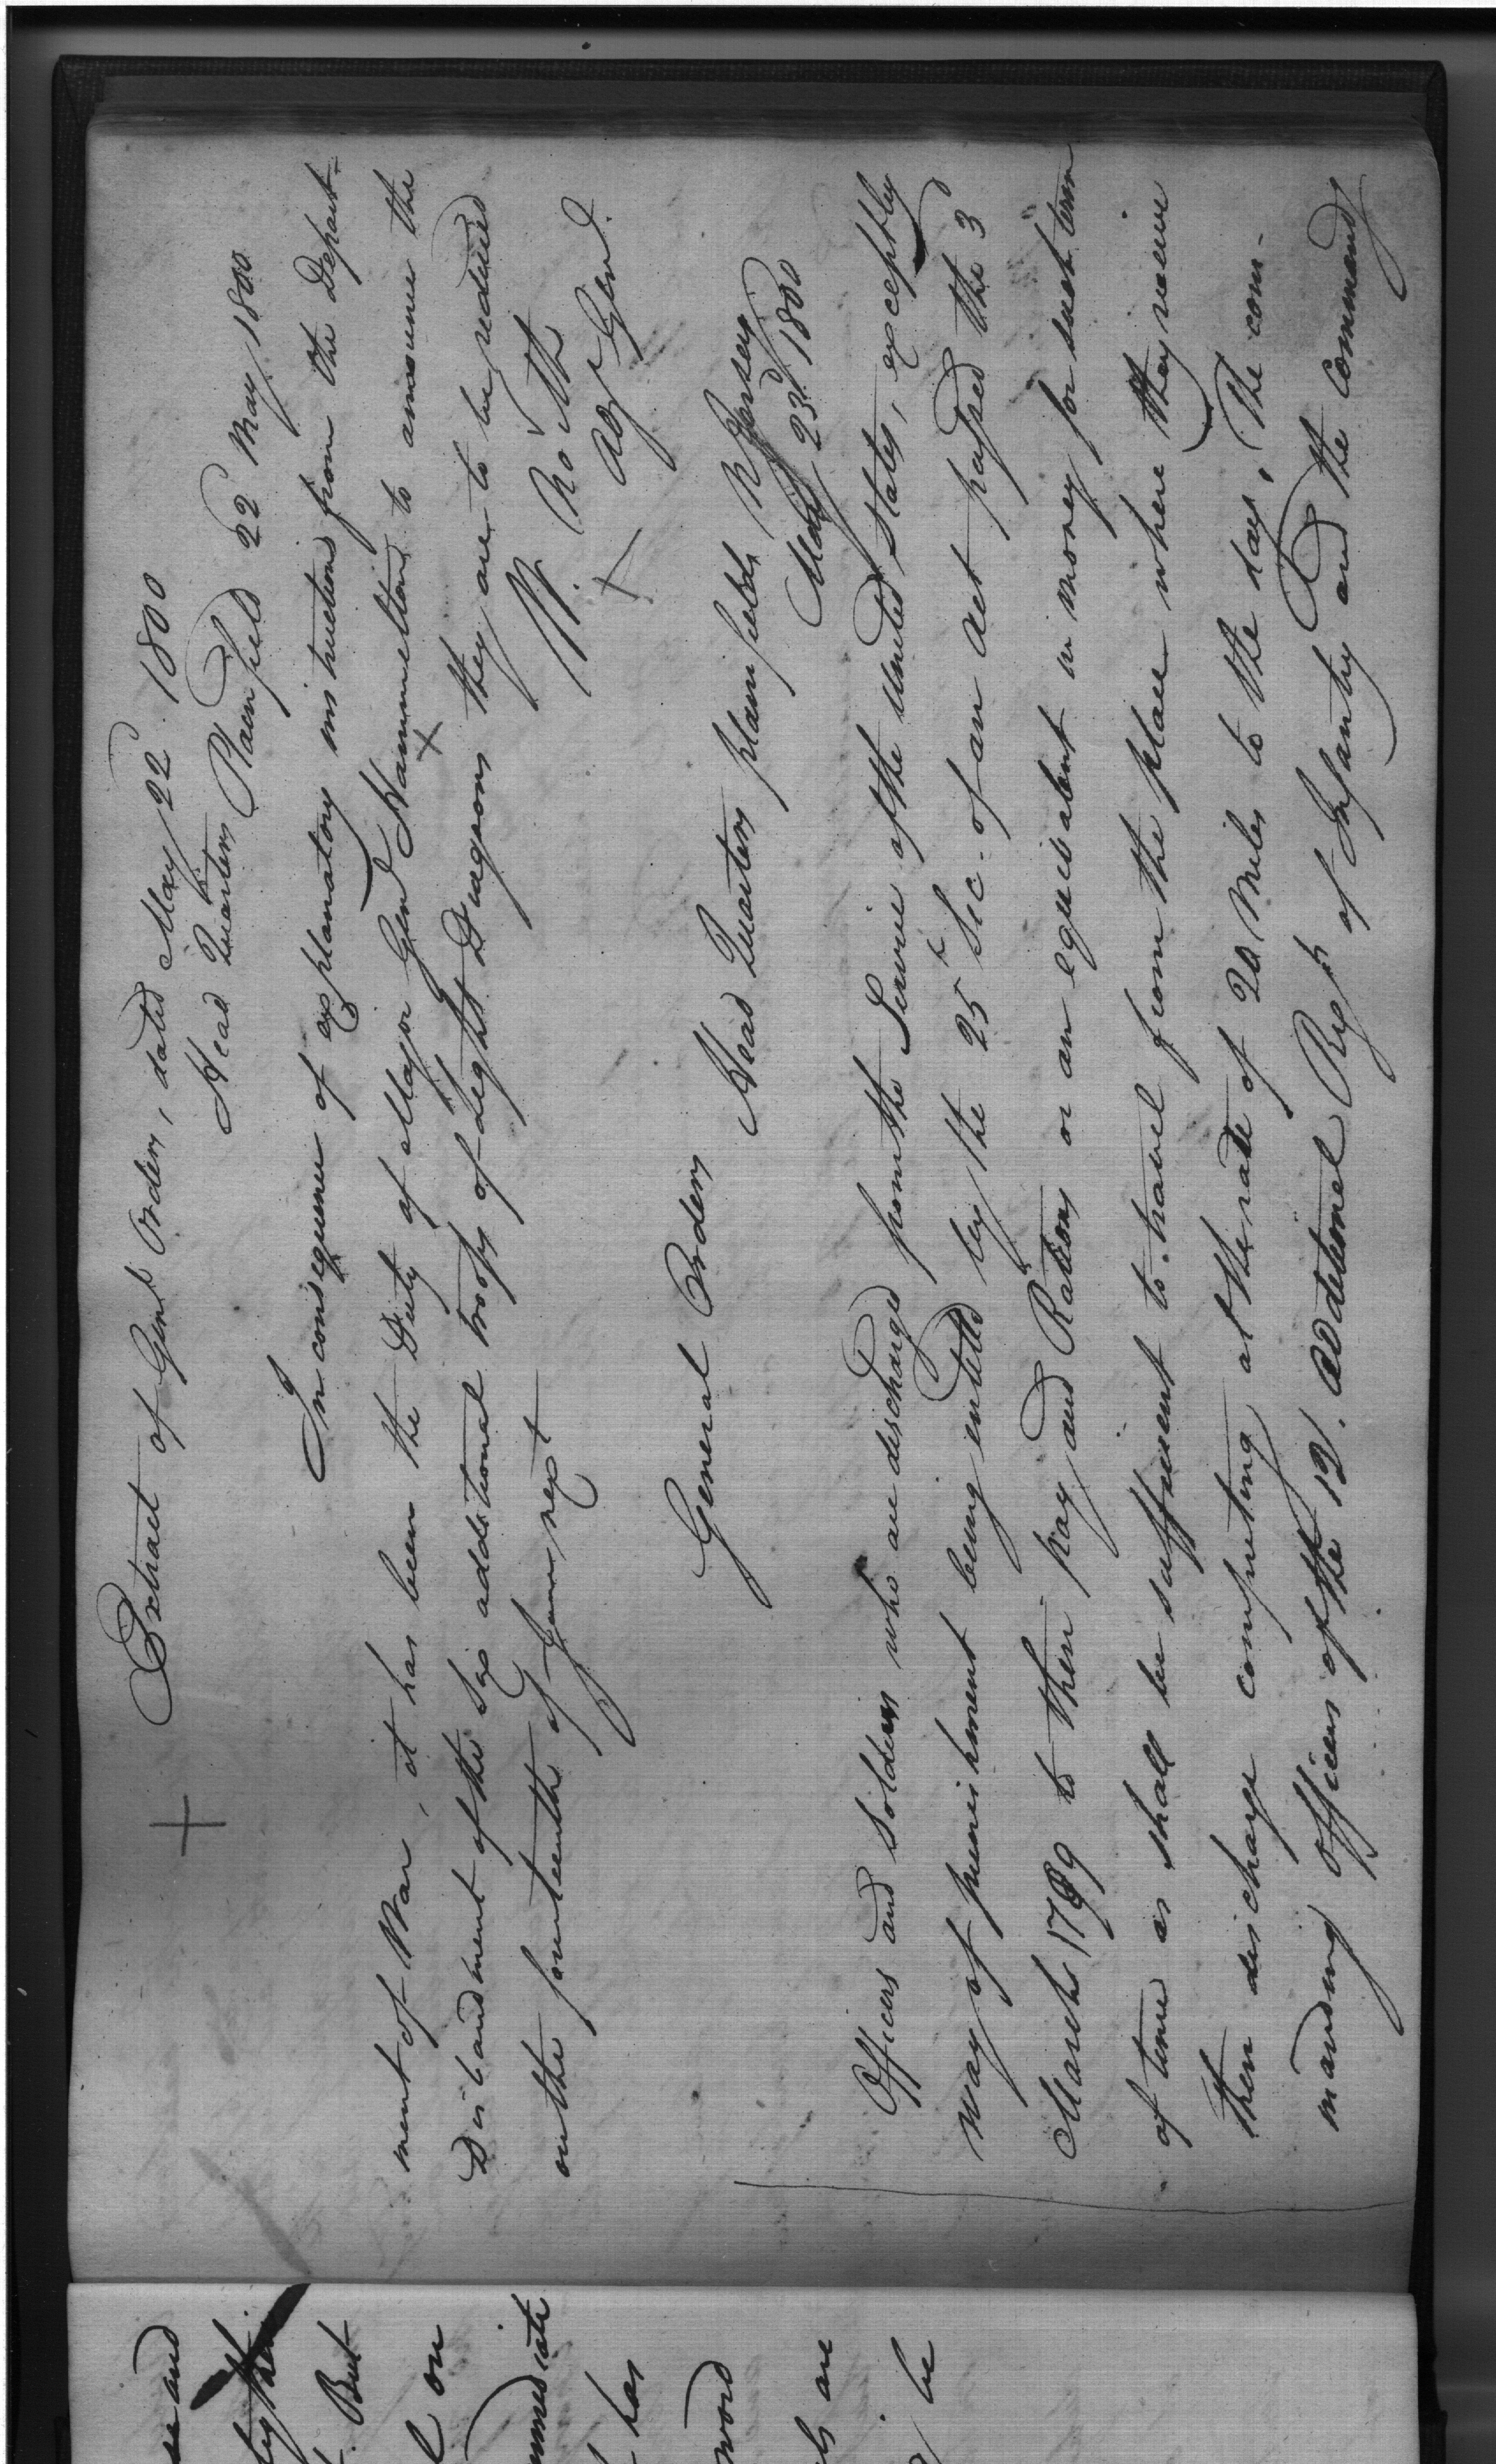 Extract of Genl Orders, dated May 22 1800
Head Quarters Plainfield 22 May 1800
In consequence of explanatory instructions from the Depart=
ment of War, it has been the Duty of Major Genl Hammelton to announce the
Disbandment of the Six additional troops of Light Dragoons they are to be reduced
on the fourteenth of June next
W.
Adjt Genl.
General Orders Head Quarters plainfield, N Jersey
May 23d 1800
Officers and Soldiers who are discharged from the Service of the United States, exceptby
way of punishment being entitld by the 25th Sec. of an act passed the 3
March 1799 to their pay and Rations or an equivalent in money for such term
of time as shall be sufficient to travel from the place where they receive
their discharge computing at the rate of 20 Miles to the day, The com-
manding officers of the 12 additional Regts of Infantry and the Command
se and
But
l on
immediate
has
word
are
be